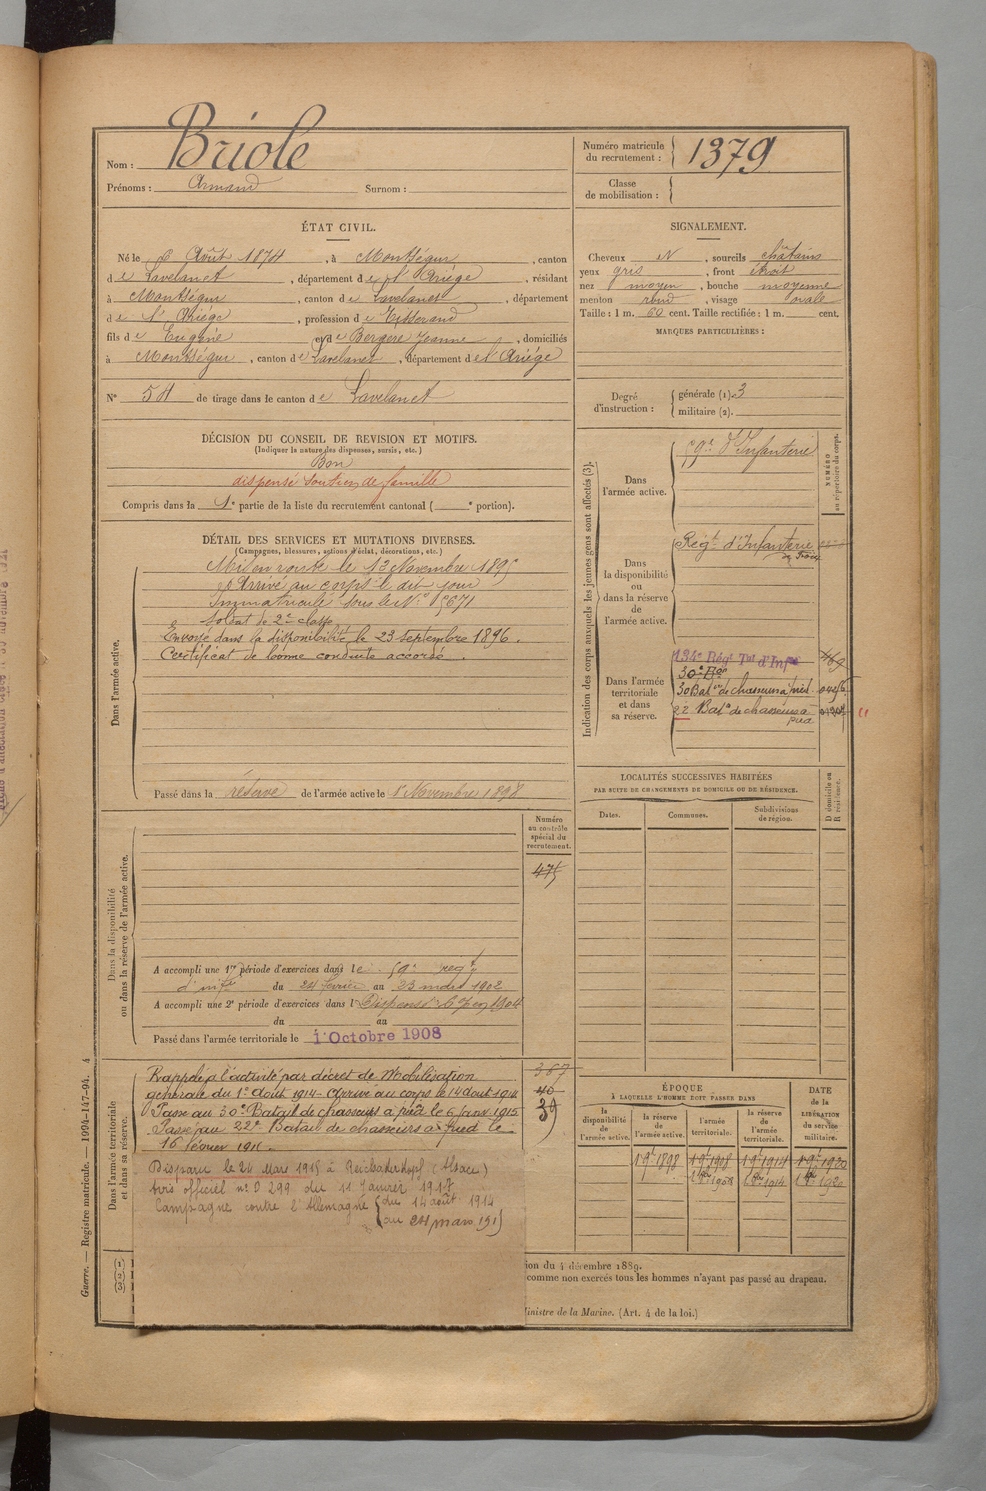 Nom : Briole
Prénoms : Armand Surnom :
Numéro matricule du recrutement : 1379
Classe de mobilisation :
ÉTAT CIVIL.
Né le Août 1874, à Montségur, canton
de Lavelanet, département de l'Ariège, résidant
à Montségur, canton de Lavelanet, département
de l'Ariège, profession de Tisserand
fils de Eugène et de Bergere Jeanne, domiciliés
à Montségur, canton de Lavelanet, département de l'Ariège
N° 54 de tirage dans le canton de Lavelanet
SIGNALEMENT.
Cheveux N, sourcils châtains
yeux gris, front étroit
nez moyen, bouche moyenne
menton rond, visage ovale
Taille : 1 m. 60 cent. Taille rectifiée : 1 m. cent.
MARQUES PARTICULIÈRES :
Degré d'instruction : générale (1). 3
militaire (2).
DÉCISION DU CONSEIL DE REVISION ET MOTIFS.
(Indiquer la nature des dispenses, sursis, etc.)
Bon
dispensé soutien de famille
Compris dans la 1e partie de la liste du recrutement cantonal ( e portion).
DÉTAIL DES SERVICES ET MUTATIONS DIVERSES.
(Campagnes, blessures, actions d'éclat, décorations, etc.)
Dans l'armée active.
Mis en route le 13 Novembre 1895
Arrivé au corps le dit jour
Immatriculé sous le N°
Soldat de 2e classe
Envoyé dans la disponibilité le 23 septembre 1896.
Certificat de bonne conduite accordé.
Passé dans la réserve de l'armée active le 1er Novembre 1898
Indication des corps auxquels les jeunes gens sont affectés (3).
NUMÉRO au répertoire du corps.
Dans l'armée active.
59e d'Infanterie
Dans la disponibilité ou dans la réserve de l'armée active.
Régt d'Infanterie de Foix
Dans l'armée territoriale et dans sa réserve.
134e Régt Tal d'Infie
30e Bon
30 Baton de chasseurs à pied
22 Baton de chasseurs à pied
LOCALITÉS SUCCESSIVES HABITÉES
PAR SUITE DE CHANGEMENTS DE DOMICILE OU DE RÉSIDENCE.
Dates. Communes. Subdivisions de région. D domicile ou R résidence.
Dans la disponibilité ou dans la réserve de l'armée active.
Numéro au contrôle spécial du recrutement.
475
A accompli une 1re période d'exercices dans le 59e regt
d'infie du 24 février au 23 mars 1902
A accompli une 2e période d'exercices dans l Dispensé 1904
du au
Passé dans l'armée territoriale le 1 Octobre 1908
Dans l'armée territoriale et dans sa réserve.
387
40
39
Rappelé à l'activité par décret de Mobilisation
générale du 1er Août 1914 - Arrivé au corps le 14 août 1914
Passé au 30e Batail de chasseurs à pied le 6 Janv 1915
Passé au 22e Batail de chasseurs à pied le
16 février 1915
Disparu le 24 Mars 1915 à Reichackerkopf (Alsace)
Avis officiel n° D 299 du 11 Janvier 1917
Campagne contre l'Allemagne du 14 août 1914
au 24 mars 1915
ÉPOQUE
À LAQUELLE L'HOMME DOIT PASSER DANS
la disponibilité de l'armée active. la réserve de l'armée active. l'armée territoriale. la réserve de l'armée territoriale.
DATE de la LIBÉRATION du service militaire.
1 9bre 1898 1 9bre 1908 1 9bre 1914 1 9bre 1920
1 8bre 1908 1 8bre 1914 1 8bre 1920
ion du 4 décembre 1889.
comme non exercés tous les hommes n'ayant pas passé au drapeau.
Ministre de la Marine. (Art. 4 de la loi.)
(1) (2) (3)
Guerre. — Registre matricule. — 1994-147-94. 4